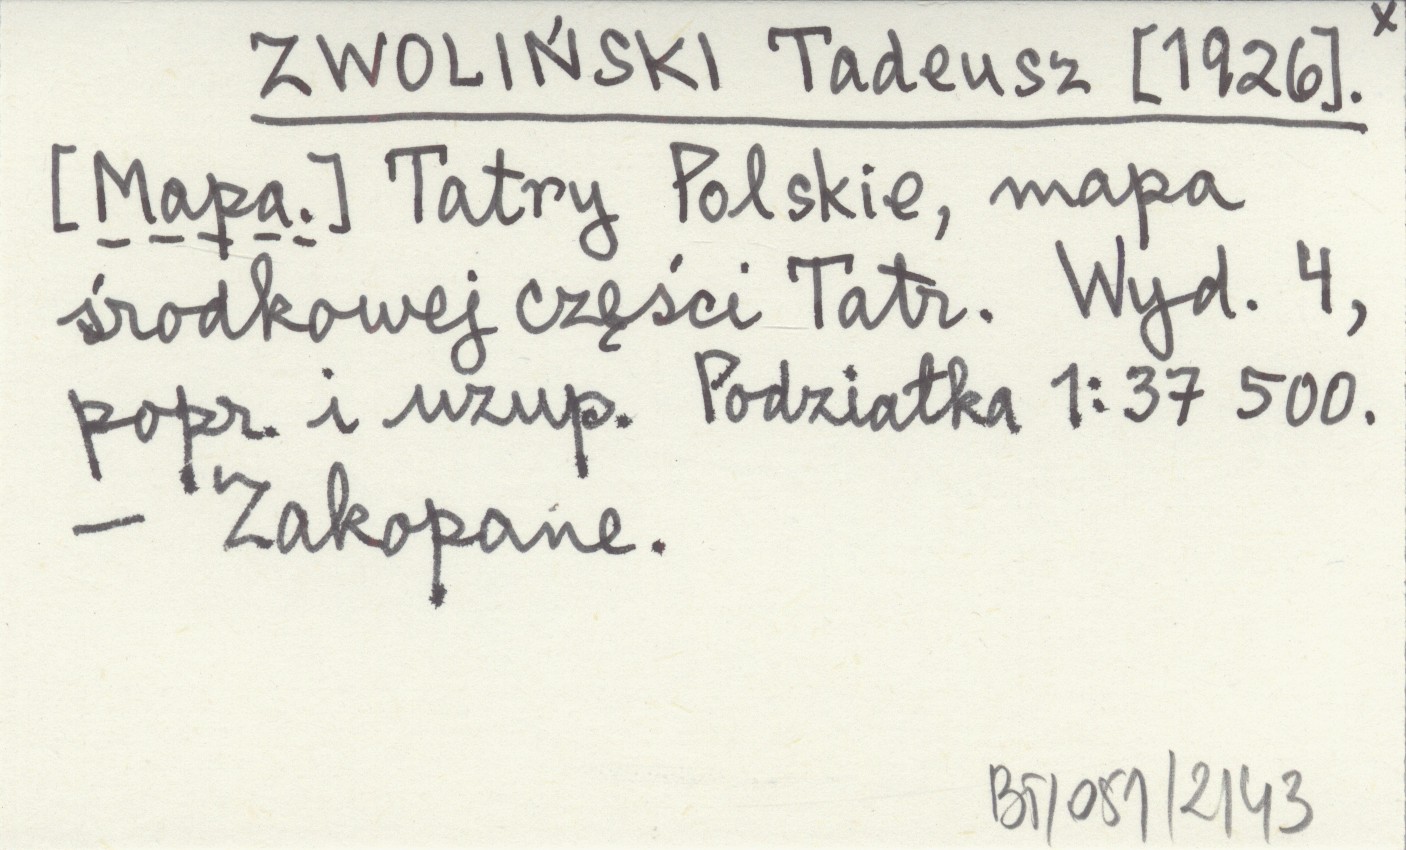 ZWOLIŃSKI Tadeusz [1926]. x
[Mapa.] Tatry Polskie, mapa
środkowej części Tatr. Wyd. 4,
popr. i uzup. Podziałka 1:37 500.
— Zakopane.
BT/051/2/43